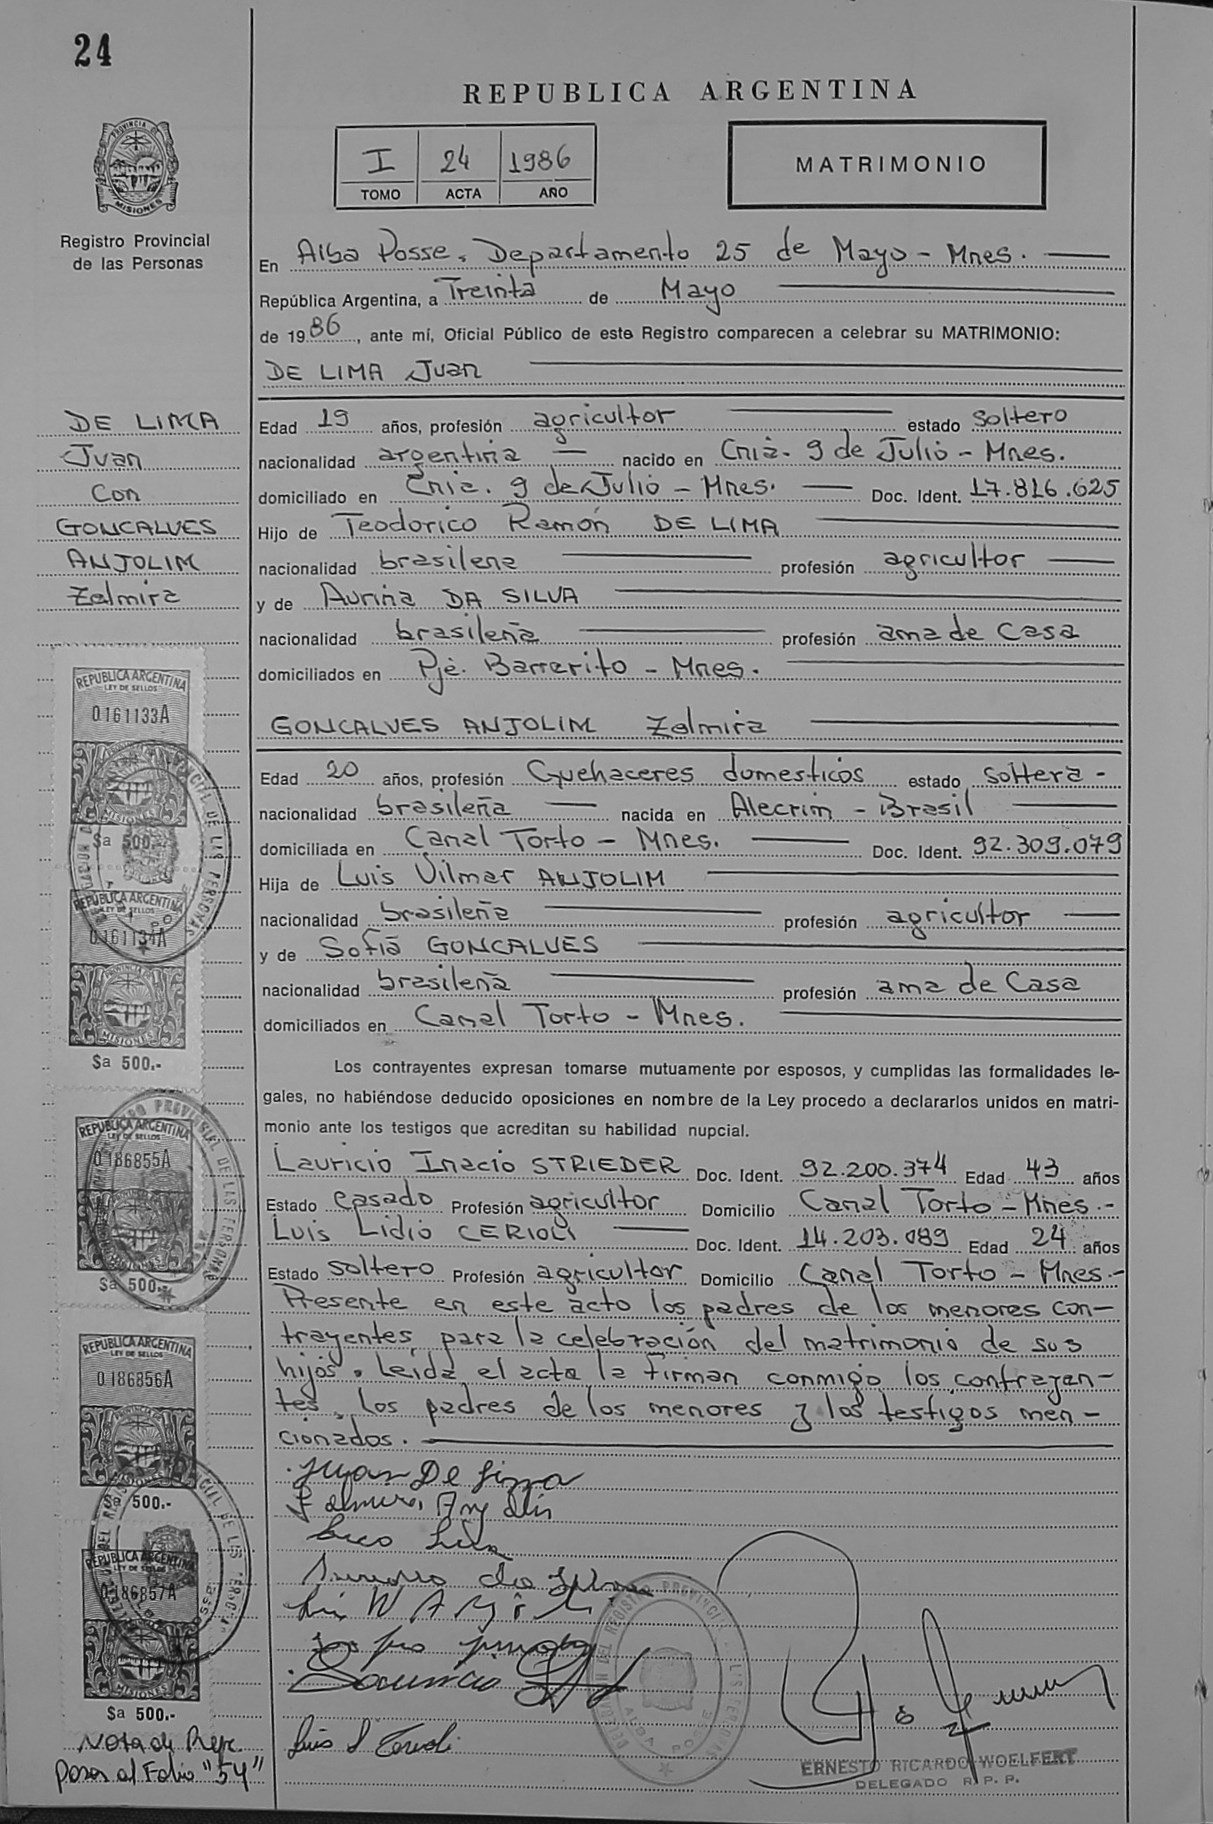 24
REPUBLICA ARGENTINA
PROVINCIA DE
MISIONES
I 24 1986
TOMO ACTA AÑO
MATRIMONIO
Registro Provincial
de las Personas
En Alba Posse, Departamento 25 de Mayo - Mnes.
República Argentina, a Treinta de Mayo
de 1986, ante mí, Oficial Público de este Registro comparecen a celebrar su MATRIMONIO:
DE LIMA Juan
DE LIMA
Juan
Con
GONCALVES
ANJOLIM
Zelmira
Edad 19 años, profesión agricultor estado soltero
nacionalidad argentina nacido en Cnia. 9 de Julio - Mnes.
domiciliado en Cnia. 9 de Julio - Mnes. Doc. Ident. 17.816.625
Hijo de Teodorico Ramón DE LIMA
nacionalidad brasilena profesión agricultor
y de Aurina DA SILVA
nacionalidad brasileña profesión ama de casa
domiciliados en Pje. Barrerito - Mnes.
GONCALVES ANJOLIM Zelmira
Edad 20 años, profesión Quehaceres domesticos estado soltera -
nacionalidad brasileña nacida en Alecrim - Brasil
domiciliada en Canal Torto - Mnes. Doc. Ident. 92.309.079
Hija de Luis Vilmar ANJOLIM
nacionalidad brasileña profesión agricultor
y de Sofia GONCALVES
nacionalidad brasileña profesión ama de Casa
domiciliados en Canal Torto - Mnes.
Los contrayentes expresan tomarse mutuamente por esposos, y cumplidas las formalidades le-
gales, no habiéndose deducido oposiciones en nombre de la Ley procedo a declararlos unidos en matri-
monio ante los testigos que acreditan su habilidad nupcial.
Lauricio Inacio STRIEDER Doc. Ident. 92.200.374 Edad 43 años
Estado casado Profesión agricultor Domicilio Canal Torto - Mnes.-
Luis Lidio CERIOLI Doc. Ident. 14.203.089 Edad 24 años
Estado soltero Profesión agricultor Domicilio Canal Torto - Mnes.-
Presente en este acto los padres de los menores con-
trayentes, para la celebración del matrimonio de sus
hijos. Leida el acta la firman conmigo los contrayen-
tes, los padres de los menores y los testigos men-
cionados.
REPUBLICA ARGENTINA
LEY DE SELLOS
0161133A
MISIONES
$a 500.-
REPUBLICA ARGENTINA
LEY DE SELLOS
0161134A
MISIONES
$a 500.-
REPUBLICA ARGENTINA
LEY DE SELLOS
0186855A
$a 500.-
REPUBLICA ARGENTINA
LEY DE SELLOS
0186856A
$a 500.-
REPUBLICA ARGENTINA
LEY DE SELLOS
0186857A
MISIONES
$a 500.-
Juan De Lima
ALBA POSSE
ERNESTO RICARDO WOELFERT
DELEGADO R. P. P.
Nota de Refe.
Pasa al Folio "54"